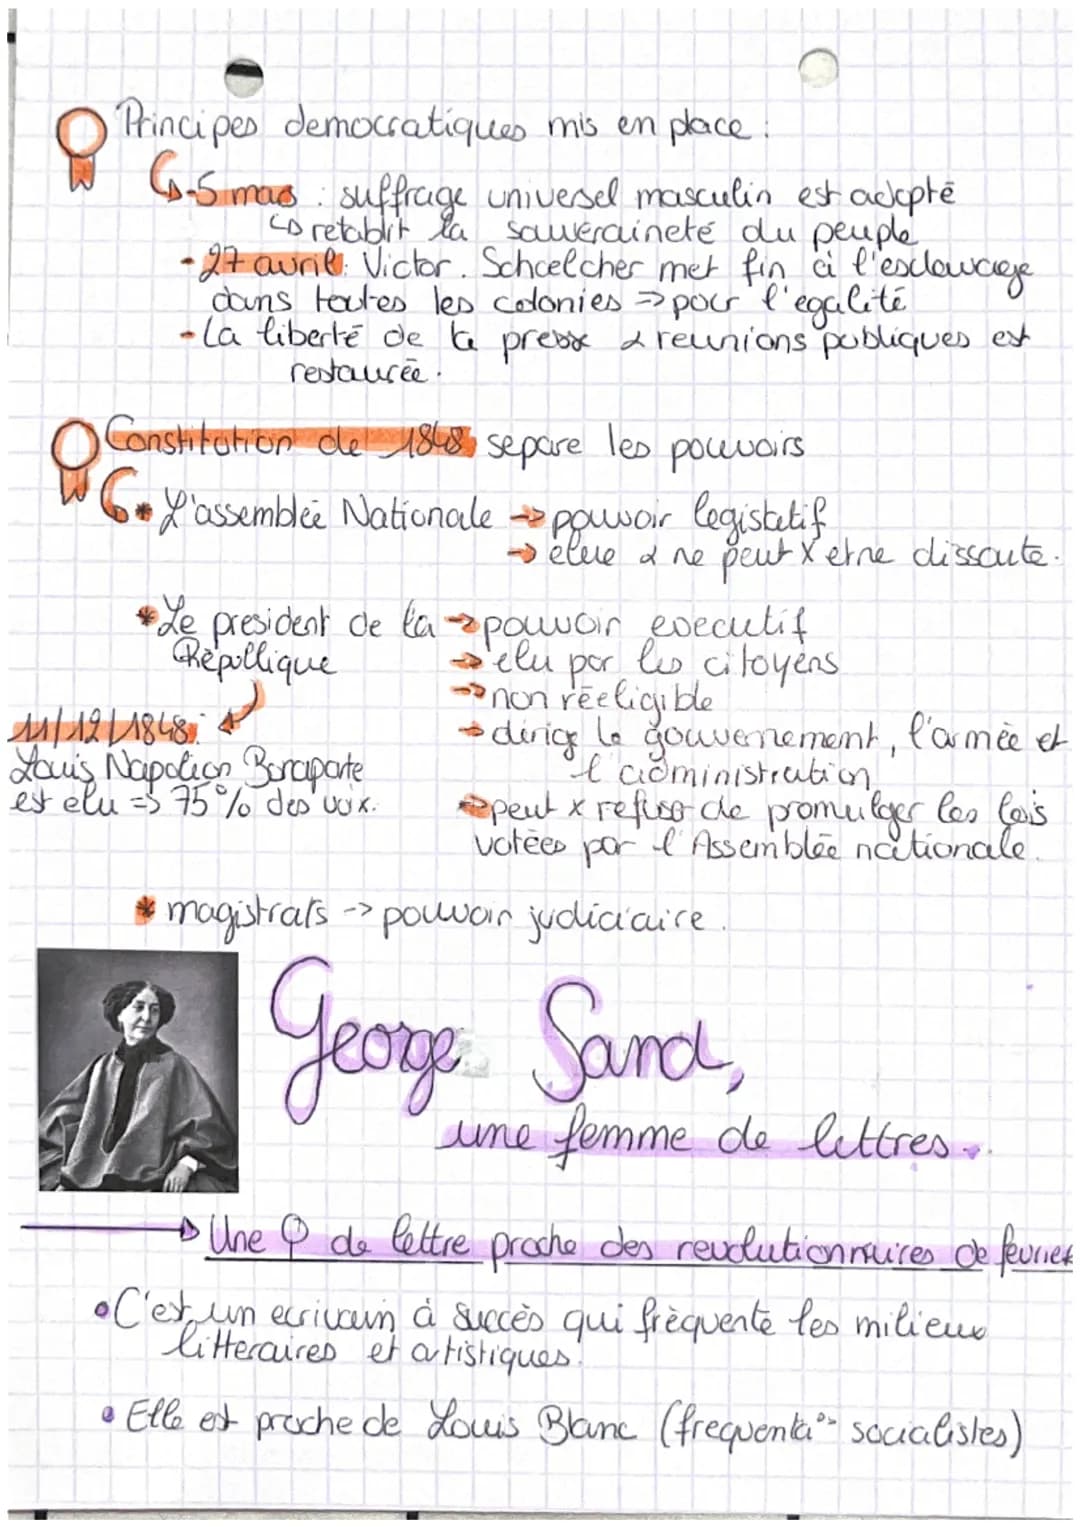 Principes democratiques mis en place :
-5 mars : suffrage universel masculin est adopté
↳ retablit la souveraineté du peuple
- 27 avril : Victor. Schoelcher met fin à l'esclavage
dans toutes les colonies => pour l'egalité
- La liberté de la presse & reunions publiques est
restaurée.
Constitution de 1848 separe les pouvoirs
* L'assemblée Nationale → pouvoir legislatif
→ elue & ne peut X etre dissoute.
* Le president de la → pouvoir executif
Républlique → elu par les citoyens
→ non rééligible
11/12/1848: → dirige le gouvernement, l'armée et
Louis Napoléon Bonaparte l'administration
est elu => 75% des voix. → peut x refuser de promulger les lois
votées par l'Assemblée nationale.
* magistrats -> pouvoir judiciaire.
George Sand,
une femme de lettres.
→ Une ♀ de lettre proche des revolutionnaires de fevrier
• C'est un ecrivain à succès qui fréquente les milieux
litteraires et artistiques.
• Elle est proche de Louis Blanc (frequenta° socialistes)